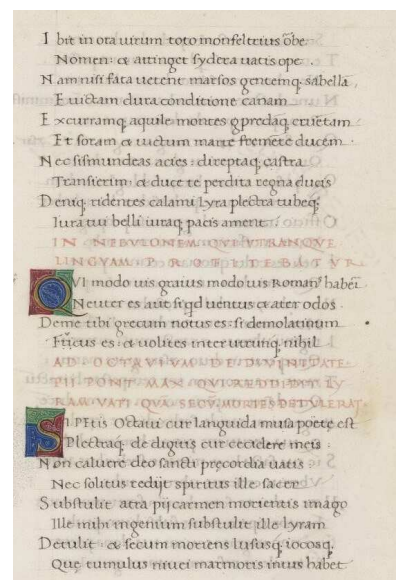 Ibit in ora uirum toto monfeltrius orbe
Nomen: et attinget sydera uatis ope.
Nam nisi fata uetent marsos gentemq; sabella
Euictam dura conditione canam
Excurramq; aquile montes predaq;
Et foram et uictum marte fremere ducem
Nec sismundeas acies: direptaq; castra
Transierim et duce te perdita regna ducis
Deniq; ridentes calami lyra plectra tubeq;
Iura tui belli iuraq; pacis ament.
IN NEBVLONEM QVI VTRANQVE
LINGVAM PROFITEBATVR
QVI modo uis graius modo uis Roman' haberi
Neuter es aut siqd uentus et ater odos
Deme tibi grecum notus es: si deme latinum
es et uolites inter utrunq; nihil
AD OCTAVIVM DE DIVINITATE
PII PONT MAX QVI REDDIDIT LY
RAM VATI QVA SECV MORIES DETVLERAT.
SEPEtis Octaui cur languida musa poete est
Plectraq; de digitis cur cecidere meis:
Non caluere deo sancti precordia uatis
Nec solitus redijt spiritus ille sacer
Substulit atra pij carmen morientis imago
Ille mihi ingenium substulit ille lyram
Detulit et secum moriens lususq; iocosq;
Que tumulus niuei marmoris intus habet